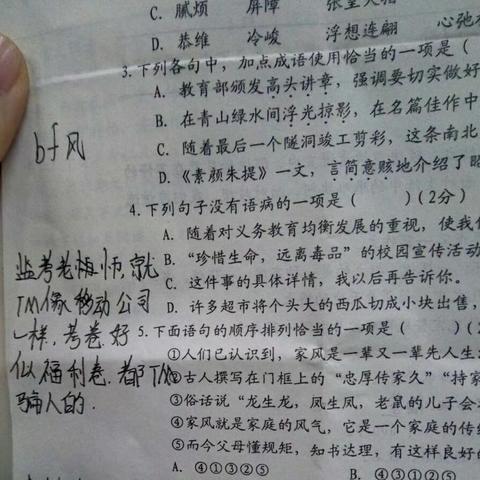 C. 腻烦 屏障
D. 恭维 冷峻 浮想连翩 心弛
3. 下列各句中，加点成语使用恰当的一项是（
A. 教育部颁发高头讲章，强调要切实做好
B. 在青山绿水间浮光掠影，在名篇佳作中
C. 随着最后一个隧洞竣工剪彩，这条南北
D.《素颜朱提》一文，言简意赅地介绍了昭
4. 下列句子没有语病的一项是（ ）（2分）
A. 随着对义务教育均衡发展的重视，使我
B. “珍惜生命，远离毒品”的校园宣传活动
C. 这件事的具体详情，我以后再告诉你。
D. 许多超市将个头大的西瓜切成小块出售，
5. 下面语句的顺序排列恰当的一项是（ ）（
①人们已认识到，家风是一辈又一辈先人生
②古人撰写在门框上的“忠厚传家久”“持家
③俗话说“龙生龙，凤生凤，老鼠的儿子会
④家风就是家庭的风气，它是一个家庭的传
⑤而今父母懂规矩，知书达理，有这样良好
A. ④①③②⑤ B. ④③①②⑤
bf风
监考老板师就
TM像移动公司
一样，考卷好
似福利卷，都TM
骗人的.